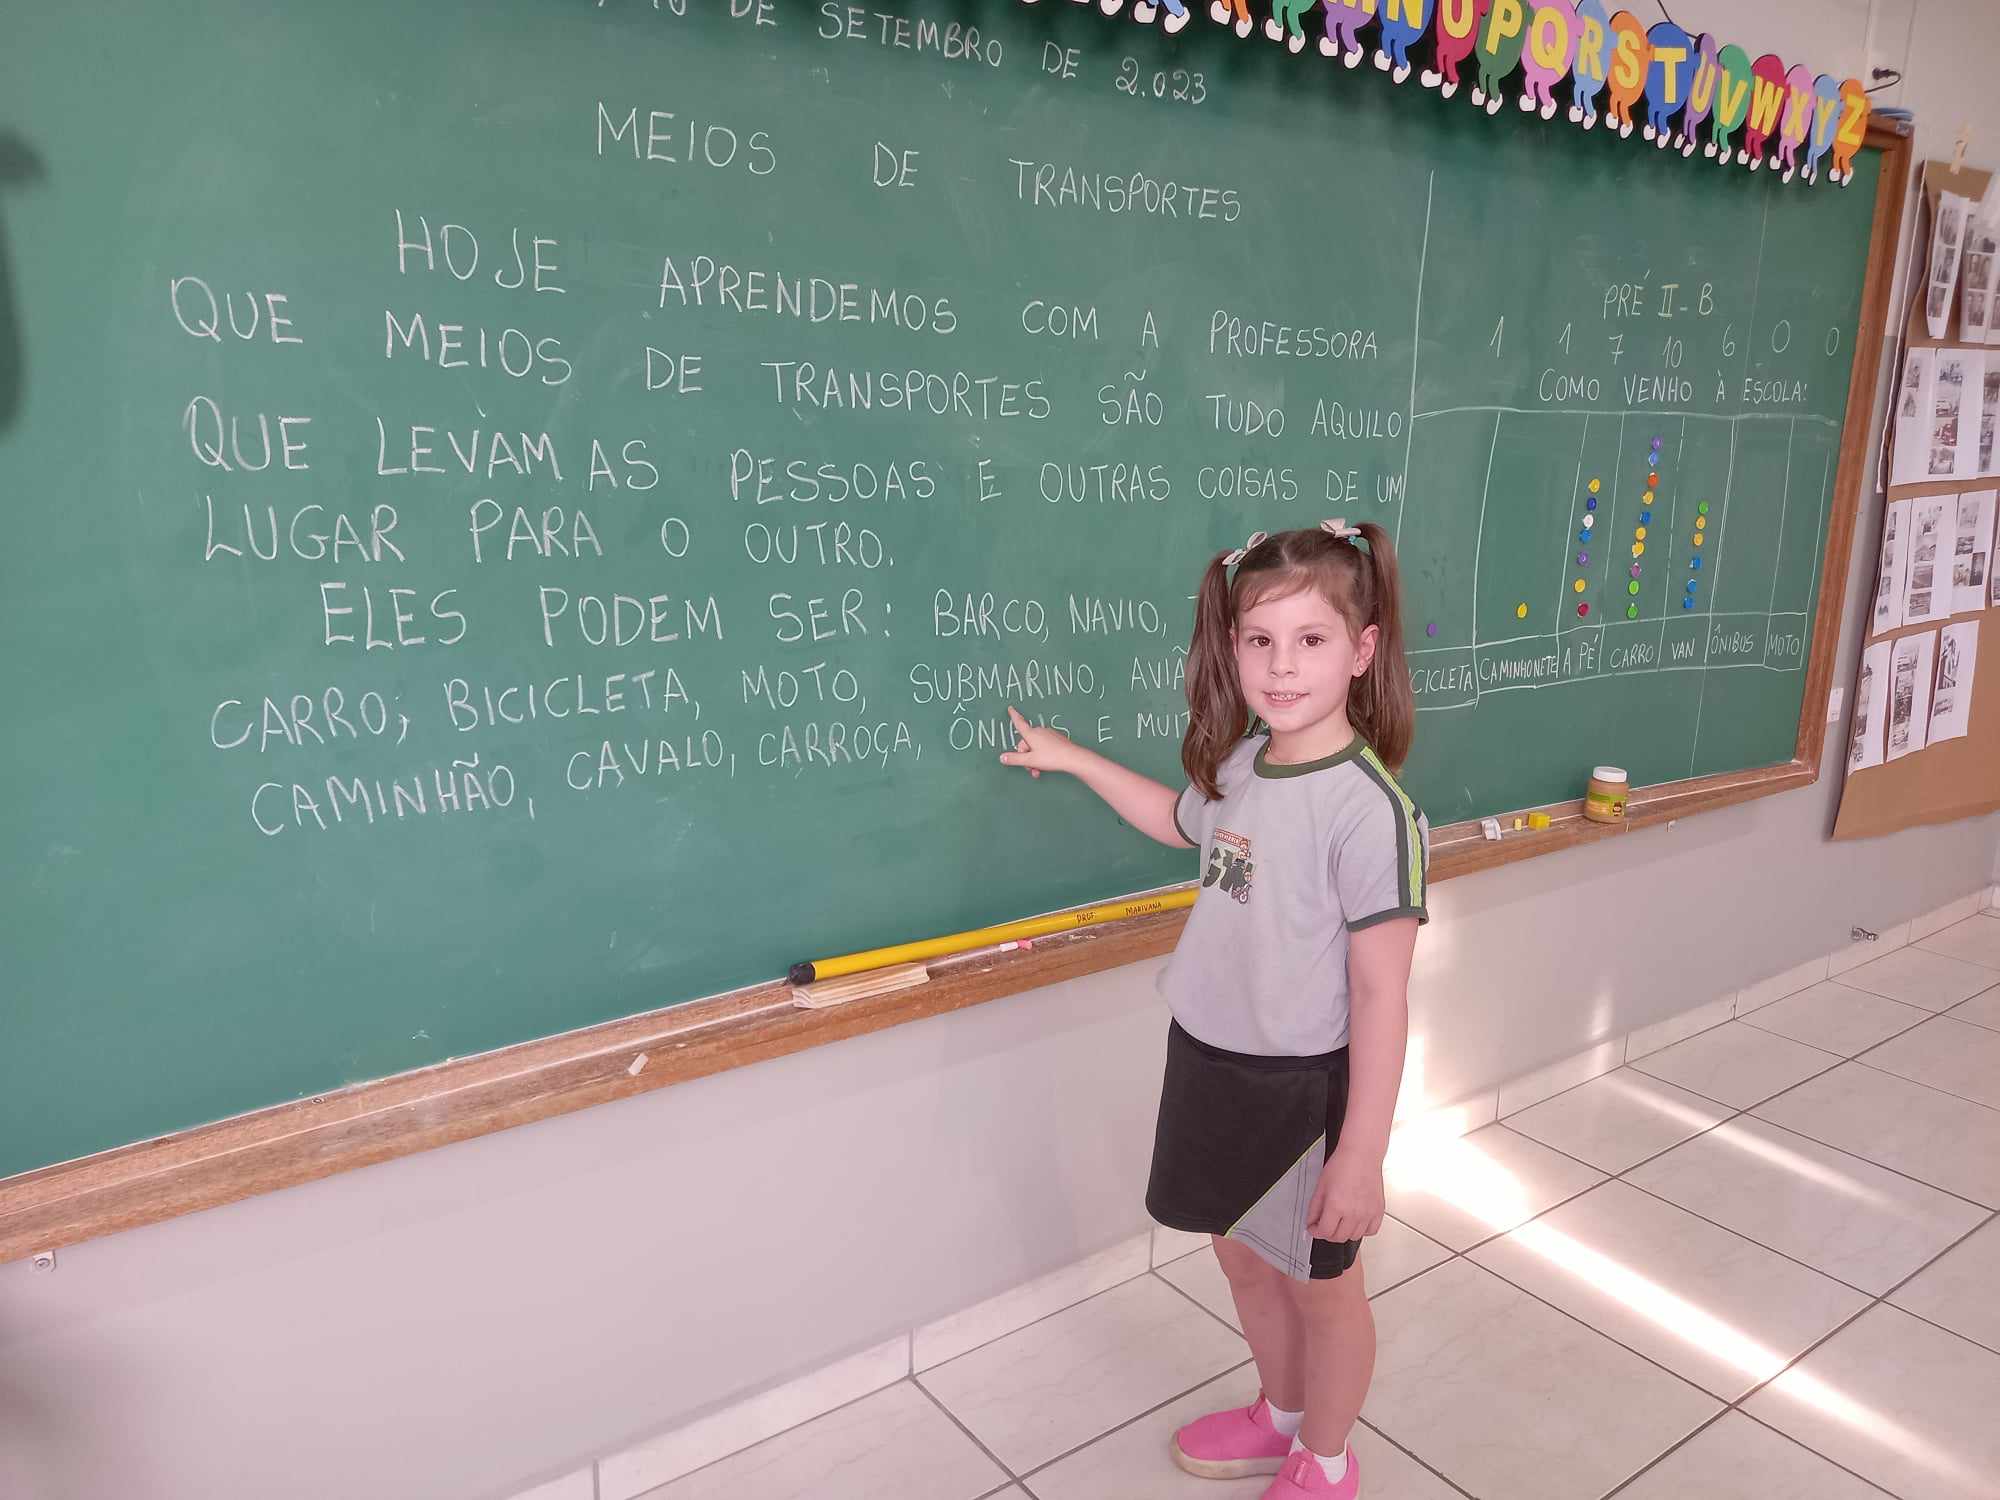 DE SETEMBRO DE 2.023
MEIOS DE TRANSPORTES
HOJE APRENDEMOS COM A PROFESSORA
QUE MEIOS DE TRANSPORTES SÃO TUDO AQUILO
QUE LEVAM AS PESSOAS E OUTRAS COISAS DE UM
LUGAR PARA O OUTRO.
ELES PODEM SER: BARCO, NAVIO,
CARRO; BICICLETA, MOTO, SUBMARINO,
CAMINHÃO, CAVALO, CARROÇA, ÔNIBUS E
PRÉ II-B
1 1 7 10 6 0 0
COMO VENHO À ESCOLA:
CICLETA CAMINHONETE A PÉ CARRO VAN ÔNIBUS MOTO
N O P Q R S T U V W X Y Z
PROF. MARIVANA